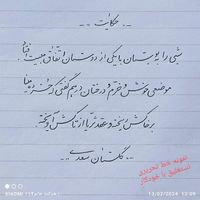 .. حکایت ..
شبی را به بوستان با یکی از دوستان اتفاق مبیت افتاد
موضعی خوش و خرّم و درختان درهم گفتی که خرده مینا
بر خاکش ریخته و عقد ثریا از تاکش آویخته
.. گلستان سعدی ..
نمونه خط تحریری
نستعلیق با خودکار
XIAOMI 11T
13/02/2024 13:09